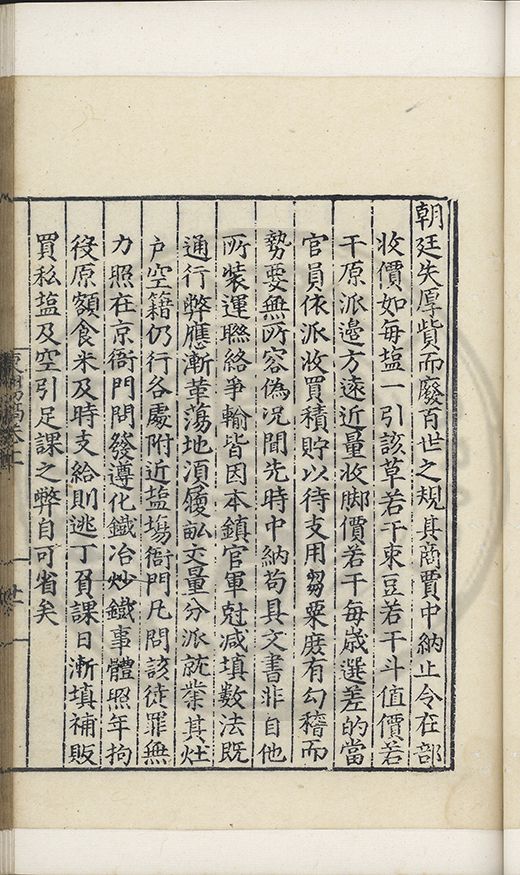 朝廷失厚貲而廢百世之規其商賈中納止令在部
收價如每塩一引該草若干束豆若干斗值價若
干原派邉方遠近量收脚價若干每嵗選差的當
官員依派收買積貯以待支用芻粟庶有勾稽而
勢要無所容偽况聞先時中納苟具文書非自他
所裝運聮絡爭輸皆因本鎮官軍尅减填數法既
通行弊應漸革蕩地湏履畆丈量分派就業其灶
户空籍仍行各處附近塩塲衙門凡問該徒罪無
力照在京衙門問發遵化鐡冶炒鐡事體照年拘
役原額食米及時支給則逃丁負課日漸填補販
買私塩及空引足課之弊自可省矣